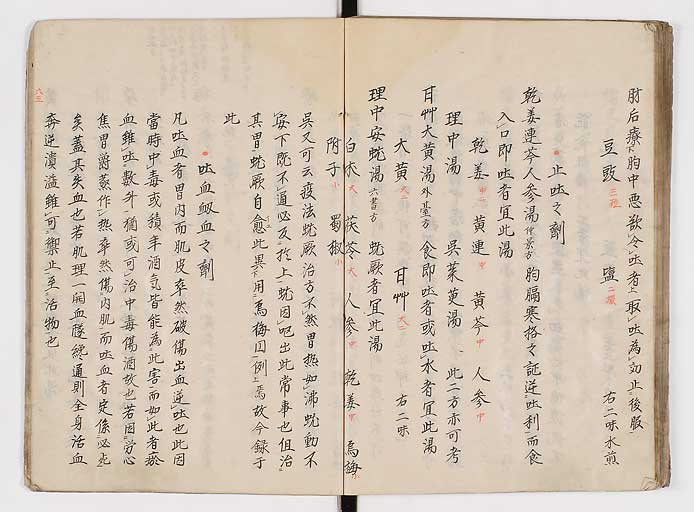 肘后療下胸中悪欲令吐者上取吐為効止後服
豆豉三種 塩二撮 右二味水煎
止吐之剤
乾姜連芩人参湯仲景方 胸膈寒格之証逆吐利而食
入口即吐者宜此湯
乾姜中 黄連中 黄芩中 人参中
理中湯 呉茱萸湯 此二方亦可考
甘艸大黄湯外臺方 食即吐者或吐水者宜此湯
大黄大 甘艸大 右二味
理中安蚘湯六書方 蚘厥者宜此湯
白朮大 茯苓大 人参中 乾姜中 烏梅小
附子小 蜀椒小
呉又可云疫法蚘厥治方不然胃熱如沸蚘動不
安下既不通必反於上蚘因呕出此常事也但治
其胃蚘厥自愈此異下用烏梅囙一例上焉故今録于
此
吐血衂血之剤
凡吐血者胃内而肌皮卒然破傷出血逆吐也此因
當時中毒或積年酒気皆能為此害而如此者瘀
血雖吐数升猶或可治中毒傷酒故也若因労心
焦胃爵蒸作熱卒然傷内肌而吐血者定係必死
矣蓋其失血也若肌理一開血隧総通則全身活血
奔逆漬溢雖可禦止至治物也